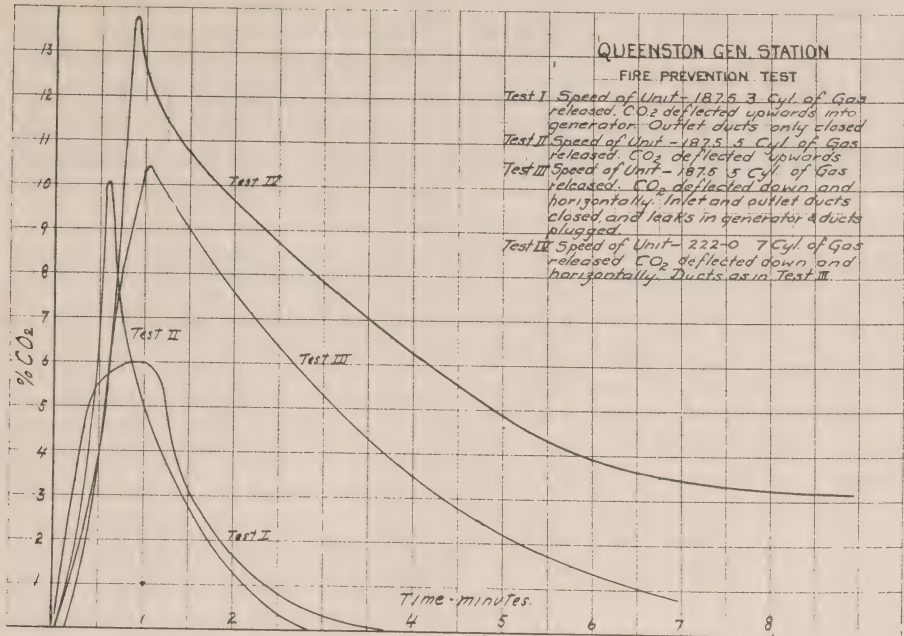 QUEENSTON GEN. STATION
FIRE PREVENTION TEST
Test I Speed of Unit - 187.5 3 Cyl. of Gas
released. CO2 deflected upwards into
generator. Outlet ducts only closed
Test II Speed of Unit - 187.5 5 Cyl. of Gas
released. CO2 deflected upwards
Test III Speed of Unit - 187.5 5 Cyl. of Gas
released. CO2 deflected down and
horizontally. Inlet and outlet ducts
closed, and leaks in generator & ducts
plugged.
Test IV Speed of Unit - 222-0 7 Cyl. of Gas
released CO2 deflected down and
horizontally. Ducts as in Test III
13
12
11
10
9
8
7
6
5
4
3
2
1
% CO2
Test IV
Test II
Test III
Test I
Time - minutes.
1 2 4 5 6 7 8